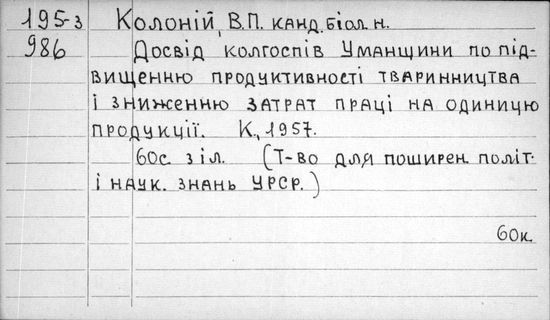 195-з Колоній, В.П. канд. біол. н.
986 Досвід колгоспів Уманщини по під-
вищенню продуктивності тваринництва
і зниженню затрат праці на одиницю
продукції. К., 1957.
60с. з іл. (Т-во для поширен. політ.
і наук. знань УРСР.)
60к.